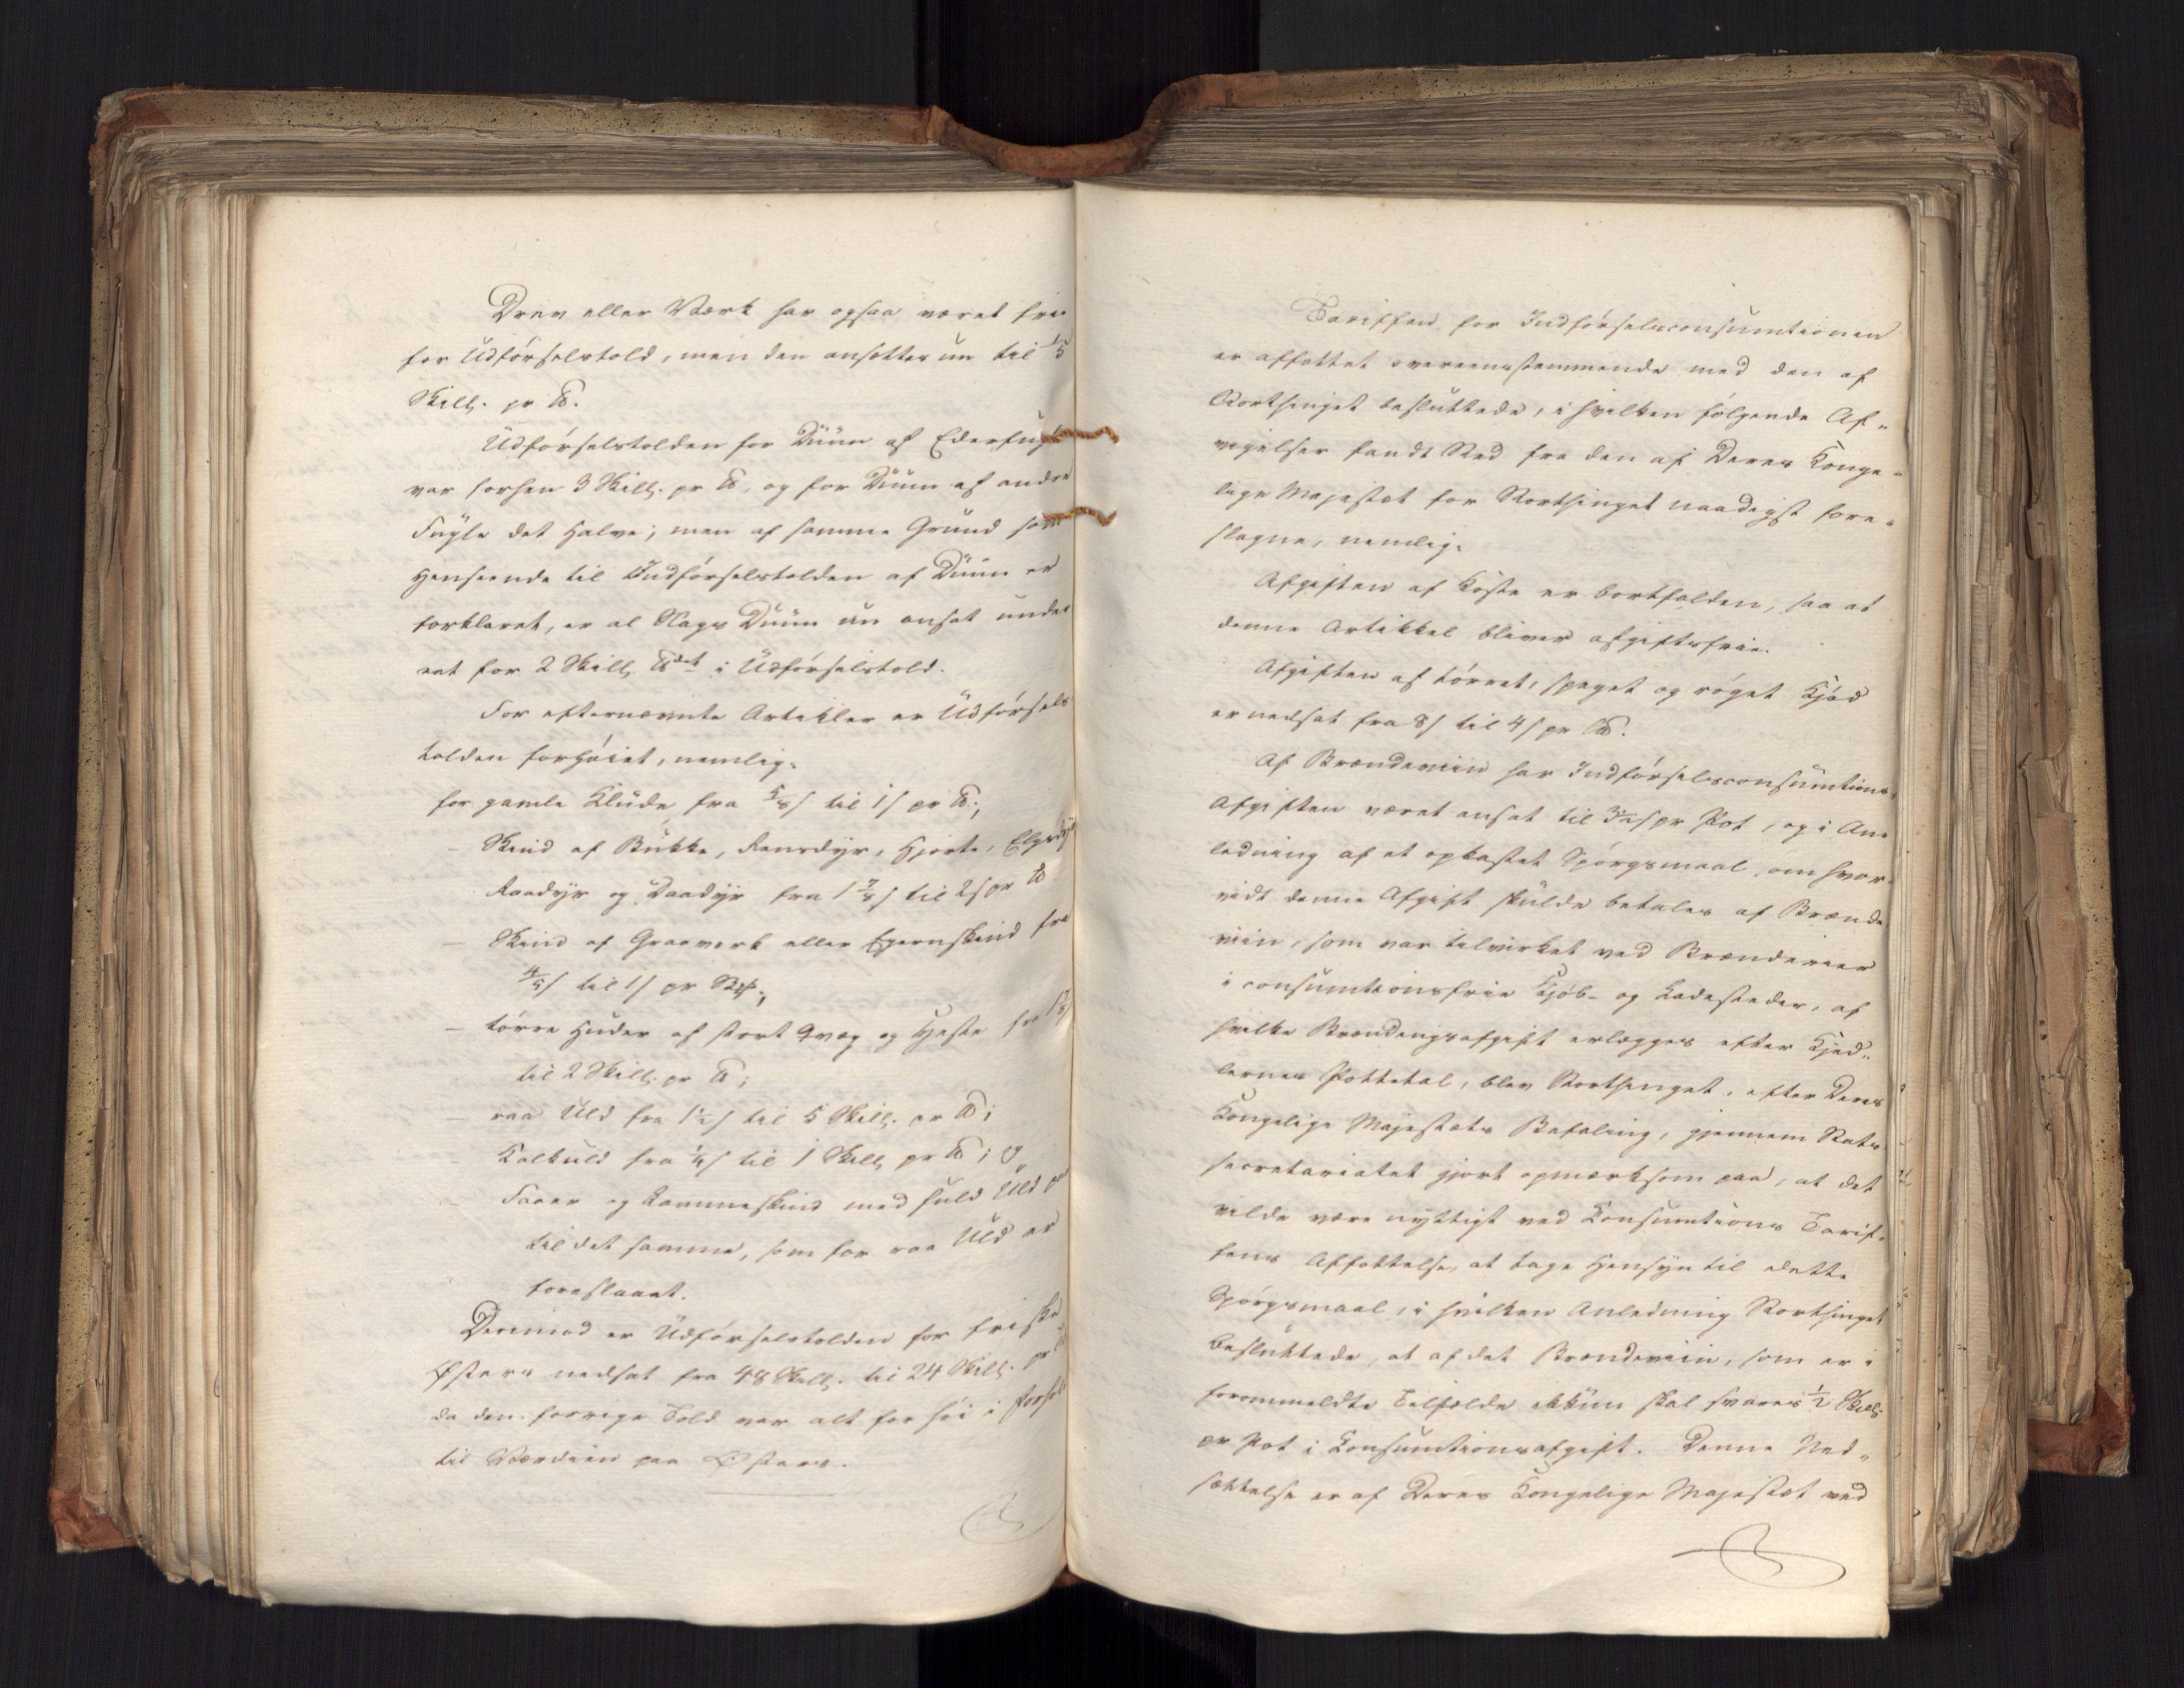 Drev eller Værk har ogsaa været frie
for Udførselstold, men den ansættes nu til 1/5
Skill. pr ℔.
Udførselstolden for Duun af Ederfugle
var forhen 3 Skill. pr ℔, og for Duun af andre
Fugle det Halve; men af samme Grund som
Henseende til Indførselstolden af Duun er
forklaret, er al Slags Duun nu ansat under
eet for 2 Skill ℔det i Udførselstold.
For efternævnte Artikler er Udførsels
tolden forhøiet, nemlig:
for gamle Klude fra 5/8 s til 1 s pr ℔;
- Skind af Bukke, Rensdyr, Hjorte, Elgsdyr
Raadyr og Daadyr fra 1 7/8 s til 2 s pr ℔
- Skind af Graaverk eller Egernskind fra
4/5 s til 1 s pr
- tørre Huder af stort Qvæg og Heste fra
til 2 Skill. pr ℔;
- raa Uld fra 1 1/2 s til 5 Skill. pr ℔;
- Kalkuld fra 1/4 s til 1 Skill pr ℔; og
- Faare og Lammeskind med fuld Uld paa
til det samme, som for raa Uld er
foreslaaet.
Derimod er Udførselstolden for friske
Østers nedsat fra 48 Skill. til 24 Skill. pr
da den forrige Told var alt for høi i Forhold
til Værdien paa Østers.
Tariffen for Indførselsconsumtionen
er affattet overeensstemmende med den af
Storthinget besluttede, i hvilken følgende Af-
vigelser fandt Sted fra den af Deres Konge-
lige Majestæt for Storthinget naadigst fore-
slagne, nemlig:
Afgiften af Koste er bortfalden, saa at
denne Artikkel bliver afgiftsfrie.
Afgiften af tørret, speget og røget Kjød
er nedsat fra 8 s til 4 s pr ℔.
Af Brændeviin har Indførselsconsumtions-
Afgiften været ansat til 3 1/2 s pr Pot, og i An-
ledning af et opkastet Spørgsmaal, om hvor-
vidt denne Afgift skulde betales af Brænde
viin, som var tilvirket ved Brænderier
i consumtionsfrie Kjøb- og Ladesteder, af
hvilke Brændingsafgift erlægges efter Kjed-
lernes Pottetal, blev Storthinget, efter Deres
Kongelige Majestæts Befaling, gjennem Stats
secretariatet gjort opmærksom paa, at det
vilde være nyttigt ved Consumtions Tarif-
fens Affattelse, at tage Hensyn til dette
Spørgsmaal, i hvilken Anledning Storthinget
besluttede, at af det Brændeviin, som er i
forommeldte Tilfælde ikkun skal svares 1/2 Skill
pr Pot i Consumtionsafgift. Denne Ned-
sættelse er af Deres Kongelige Majestæt ved